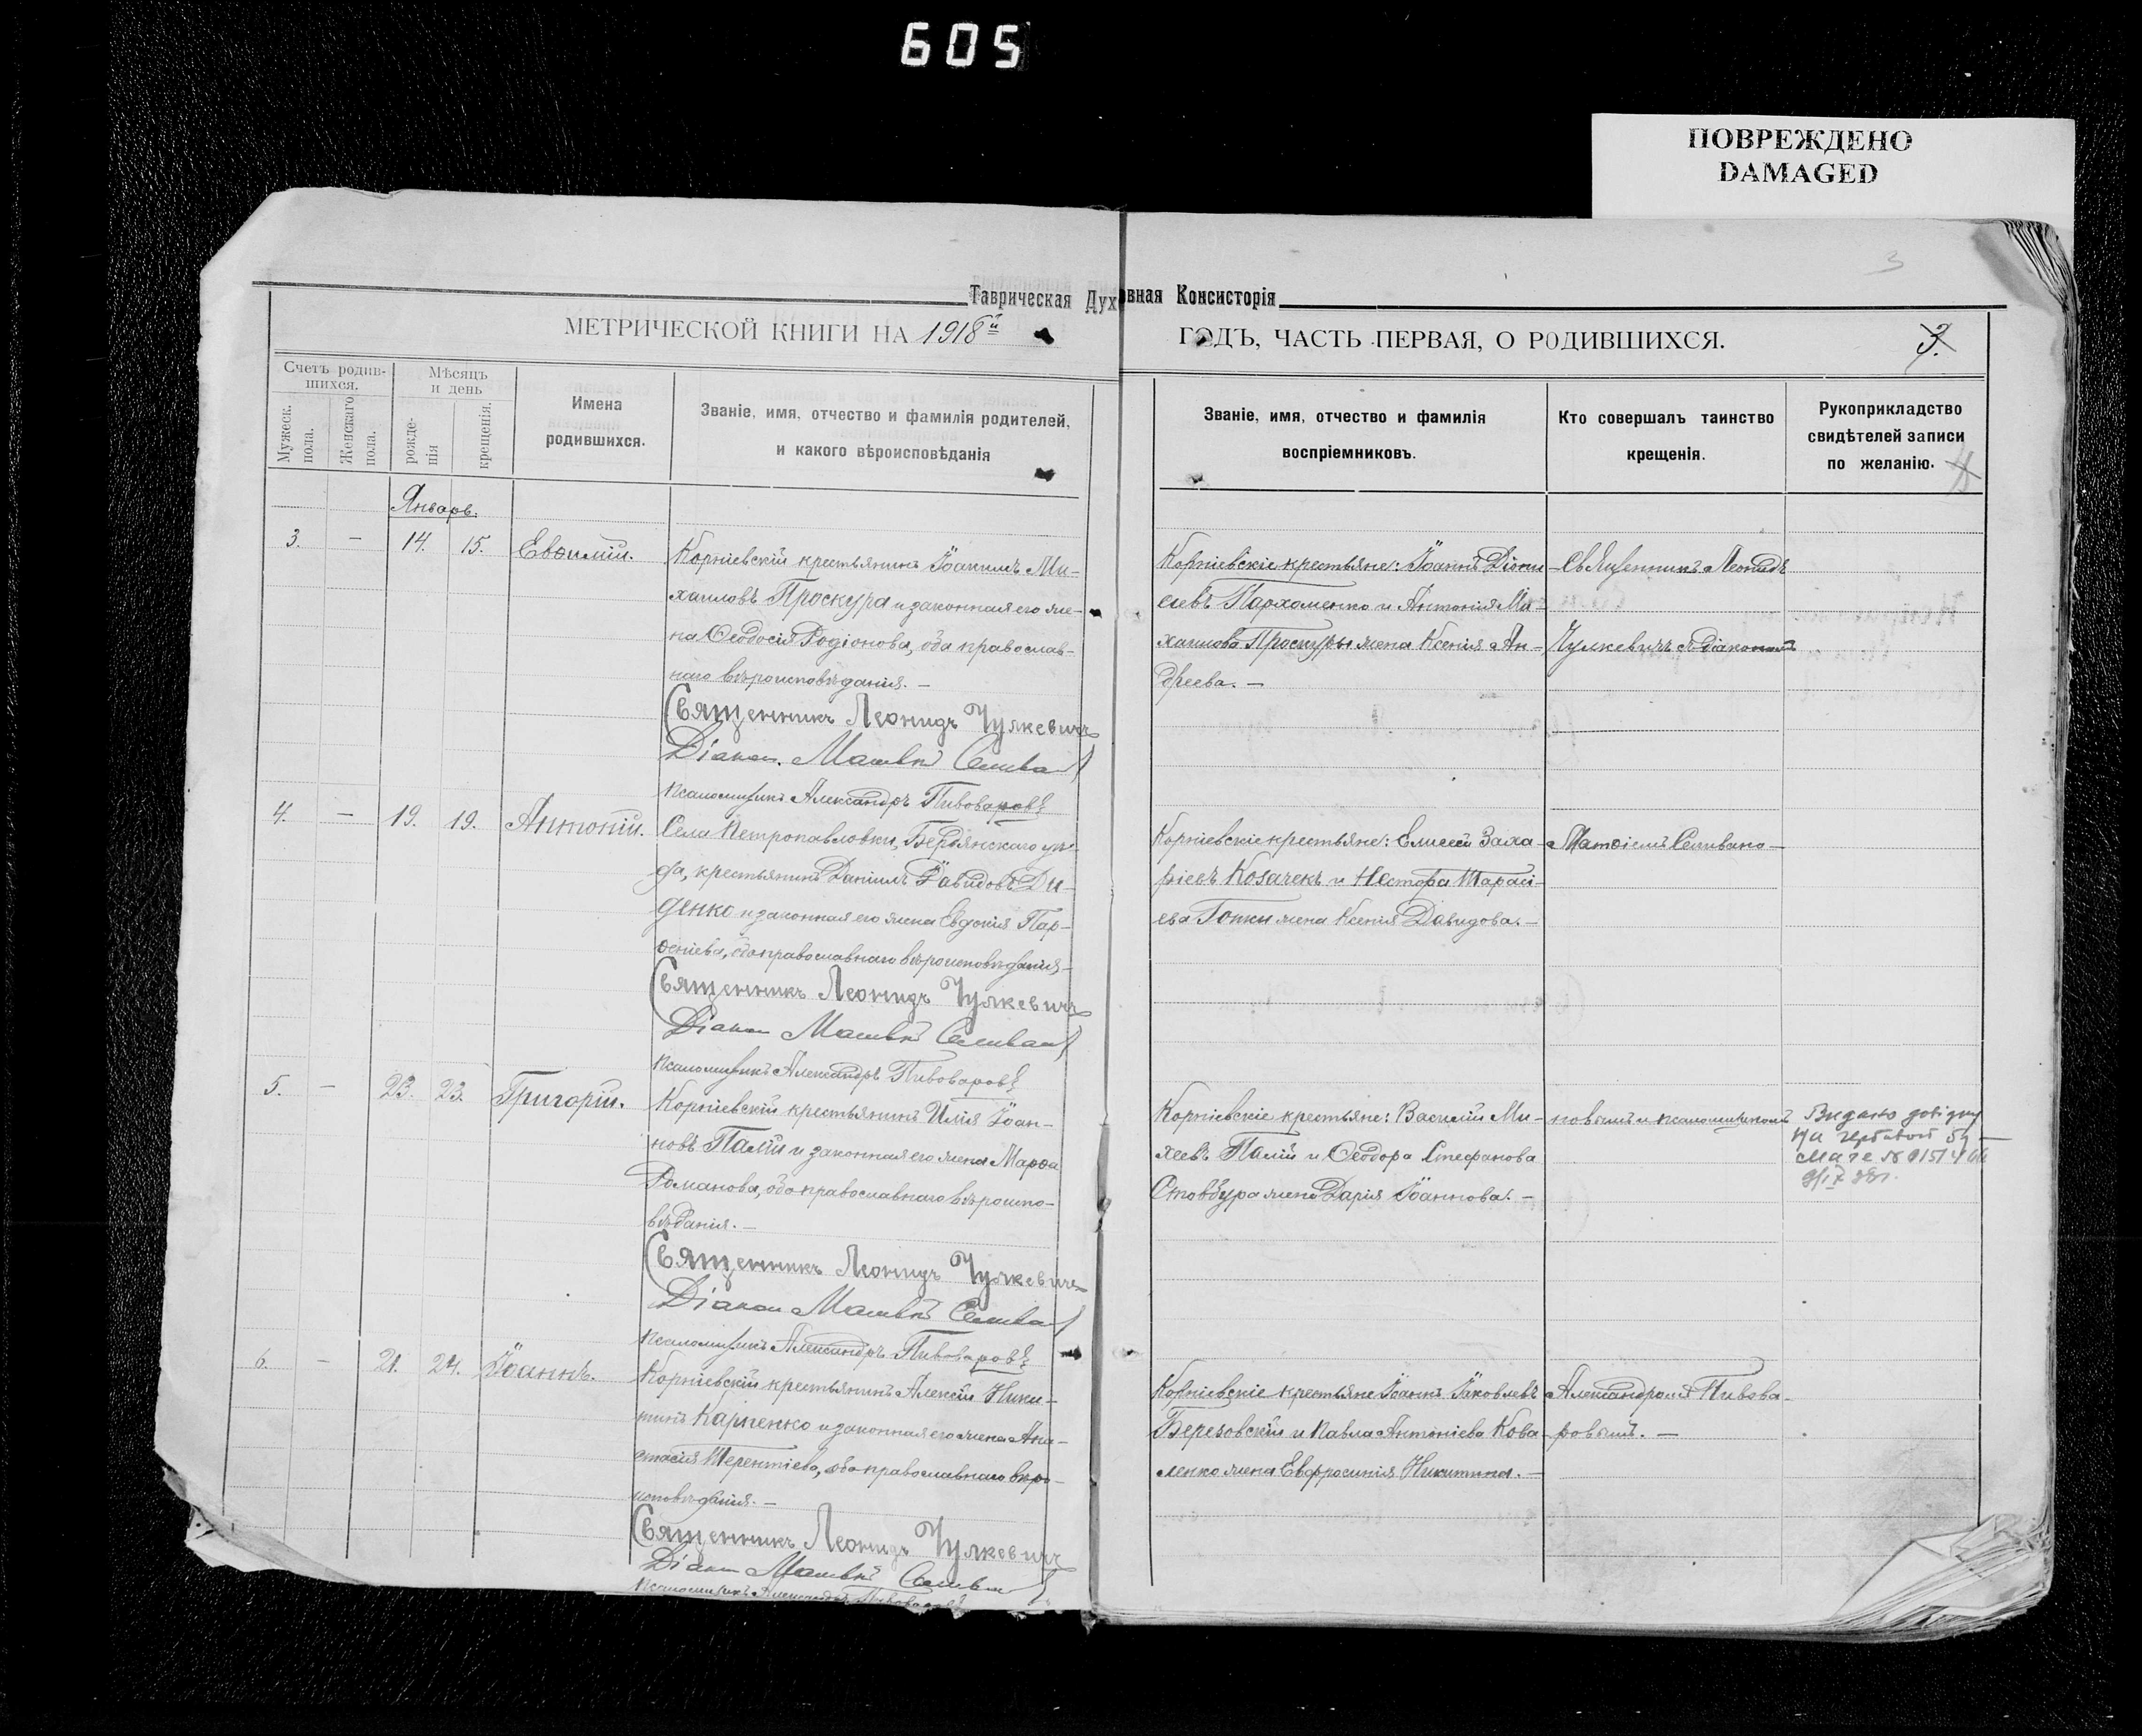 605
ПОВРЕЖДЕНО
DAMAGED
3
Таврическая Духовная Консисторія
МЕТРИЧЕСКОЙ КНИГИ НА 1918й ГОДЪ, ЧАСТЬ ПЕРВАЯ, О РОДИВШИХСЯ.
3.
Счетъ родив-
шихся.
Мужеск.
пола.
Женскаго
пола.
Мѣсяцъ
и день
рожде-
нія
крещенія.
Имена
родившихся.
Званіе, имя, отчество и фамилія родителей,
и какого вѣроисповѣданія
Званіе, имя, отчество и фамилія
воспріемниковъ.
Кто совершалъ таинство
крещенія.
Рукоприкладство
свидѣтелей записи
по желанію.
Январь.
3. — 14. 15. Евѳимій.
Корніевскій крестьянинъ Іоакимъ Ми-
хаиловъ Проскура и законная его же-
на Ѳеодосія Родіонова, оба православ-
наго вѣроисповѣданія. —
Священникъ Леонидъ Чулкевичъ
Діакон. Матвѣй Селиван
Псаломщикъ Александръ Пивоваровъ
Корніевскіе крестьяне: Іоаннъ Діони-
сіевъ Пархоменко и Антонія Ми-
хаилова Проскуры жена Ксенія Ан-
дреева. —
Священникъ Леонидъ
Чулкевичъ съ діакономъ
4. — 19. 19. Антоній.
Села Петропавловки, Бердянскаго уѣз-
да, крестьянинъ Даніилъ Давидовъ Ди-
денко и законная его жена Евдокія Пар-
ѳеніева, оба православнаго вѣроисповѣданія. —
Священникъ Леонидъ Чулкевичъ
Діакон Матвѣй Селиван
Псаломщикъ Александръ Пивоваровъ
Корніевскіе крестьяне: Елисей Заха-
ріевъ Козачекъ и Нестора Тарасі-
ева Гопки жена Ксенія Давидова. —
Матѳіемъ Селивано-
5. — 23. 23. Григорій.
Корніевскій крестьянинъ Илія Іоан-
новъ Палій и законная его жена Марѳа
Романова, оба православнаго вѣроиспо-
вѣданія. —
Священникъ Леонидъ Чулкевичъ
Діакон Матвѣй Селиван
Псаломщикъ Александръ Пивоваровъ
Корніевскіе крестьяне: Василій Ми-
хеевъ Палій и Ѳеодора Стефанова
Стовбура жена Дарія Іоаннова. —
новымъ и псаломщикомъ
Видано довідку
на гербовой бу-
маге №
6. — 21. 24. Іоаннъ.
Корніевскій крестьянинъ Алексій Ники-
тинъ Карпенко и законная его жена Ана-
стасія Терентіева, оба православнаго вѣро-
исповѣданія. —
Священникъ Леонидъ Чулкевичъ
Діакон Матвѣй Селиван
Псаломщикъ Александръ Пивоваровъ
Корніевскіе крестьяне Іоаннъ Іаковлевъ
Березовскій и Павла Антоніева Кова-
ленко жена Евфросинія Никитина. —
Александромъ Пивова-
ровымъ. —